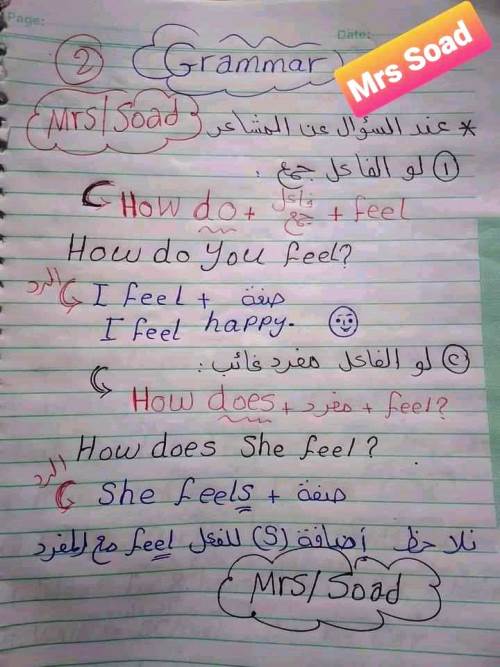 Page:
Date:
Mrs Soad
② Grammar
Mrs/Soad
* عند السؤال عن المشاعر
① لو الفاعل جمع :
How do + فاعل جمع + feel
How do you feel?
الرد I feel + صفة
I feel happy.
② لو الفاعل مفرد غائب :
How does + مفرد + feel?
How does She feel?
الرد She feels + صفة
نلاحظ أضافة (S) للفعل feel مع المفرد
Mrs/Soad